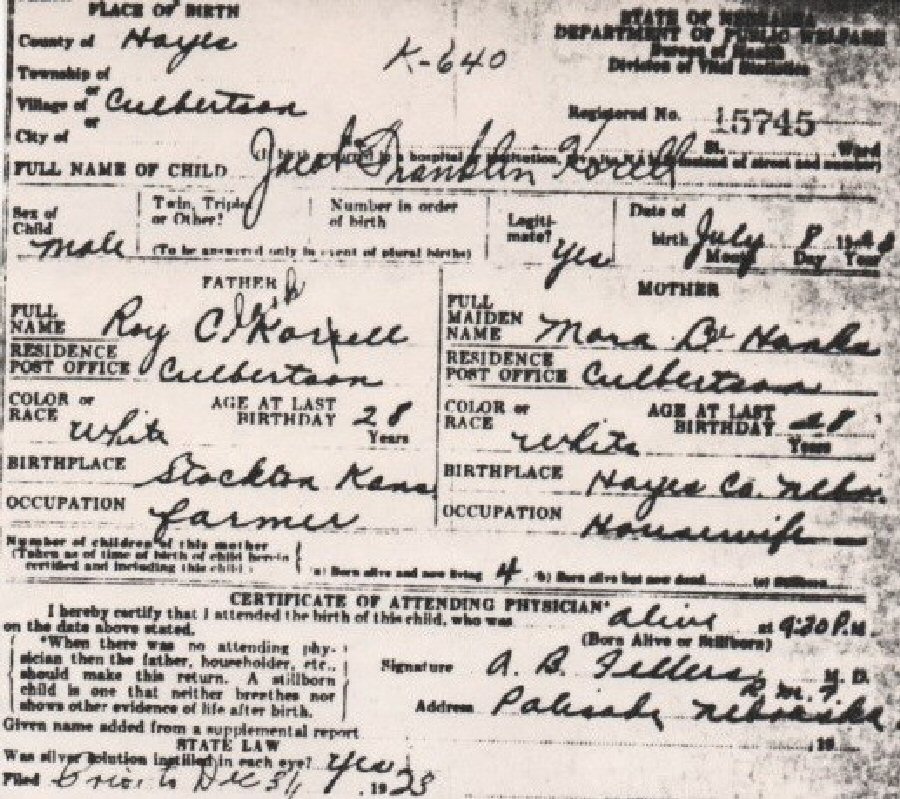 PLACE OF BIRTH
STATE OF NEBRASKA
DEPARTMENT OF PUBLIC WELFARE
Bureau of Health
Division of Vital Statistics
County of Hayes
K-640
Township of
or
Village of Culbertson
or
City of
Registered No. 15745
St. Ward
FULL NAME OF CHILD Jacob Franklin Korell
Sex of Child Male
Twin, Triplet or Other?
Number in order of birth
(To be answered only in event of plural births)
Legiti-mate? Yes
Date of birth July 8 19
Month Day Year
FATHER
FULL NAME Roy C Korrell
RESIDENCE POST OFFICE Culbertson
COLOR or RACE White
AGE AT LAST BIRTHDAY 28 Years
BIRTHPLACE Stockton Kans
OCCUPATION farmer
MOTHER
FULL MAIDEN NAME Mara Hanks
RESIDENCE POST OFFICE Culbertson
COLOR or RACE White
AGE AT LAST BIRTHDAY 28 Years
BIRTHPLACE Hayes Co. Nebr.
OCCUPATION Housewife
Number of children of this mother
(Taken as of time of birth of child herein
certified and including this child)
(a) Born alive and now living 4 (b) Born alive but now dead (c) Stillborn
CERTIFICATE OF ATTENDING PHYSICIAN*
I hereby certify that I attended the birth of this child, who was alive at 9:30 P.M.
on the date above stated.
(Born Alive or Stillborn)
*When there was no attending phy-
sician then the father, householder, etc.,
should make this return. A stillborn
child is one that neither breathes nor
shows other evidence of life after birth.
Signature A. B. Fellers M. D.
Address Palisade Nebraska
Given name added from a supplemental report
19
STATE LAW
Was silver solution instilled in each eye? Yes
Filed Prior to Dec 31, 1923